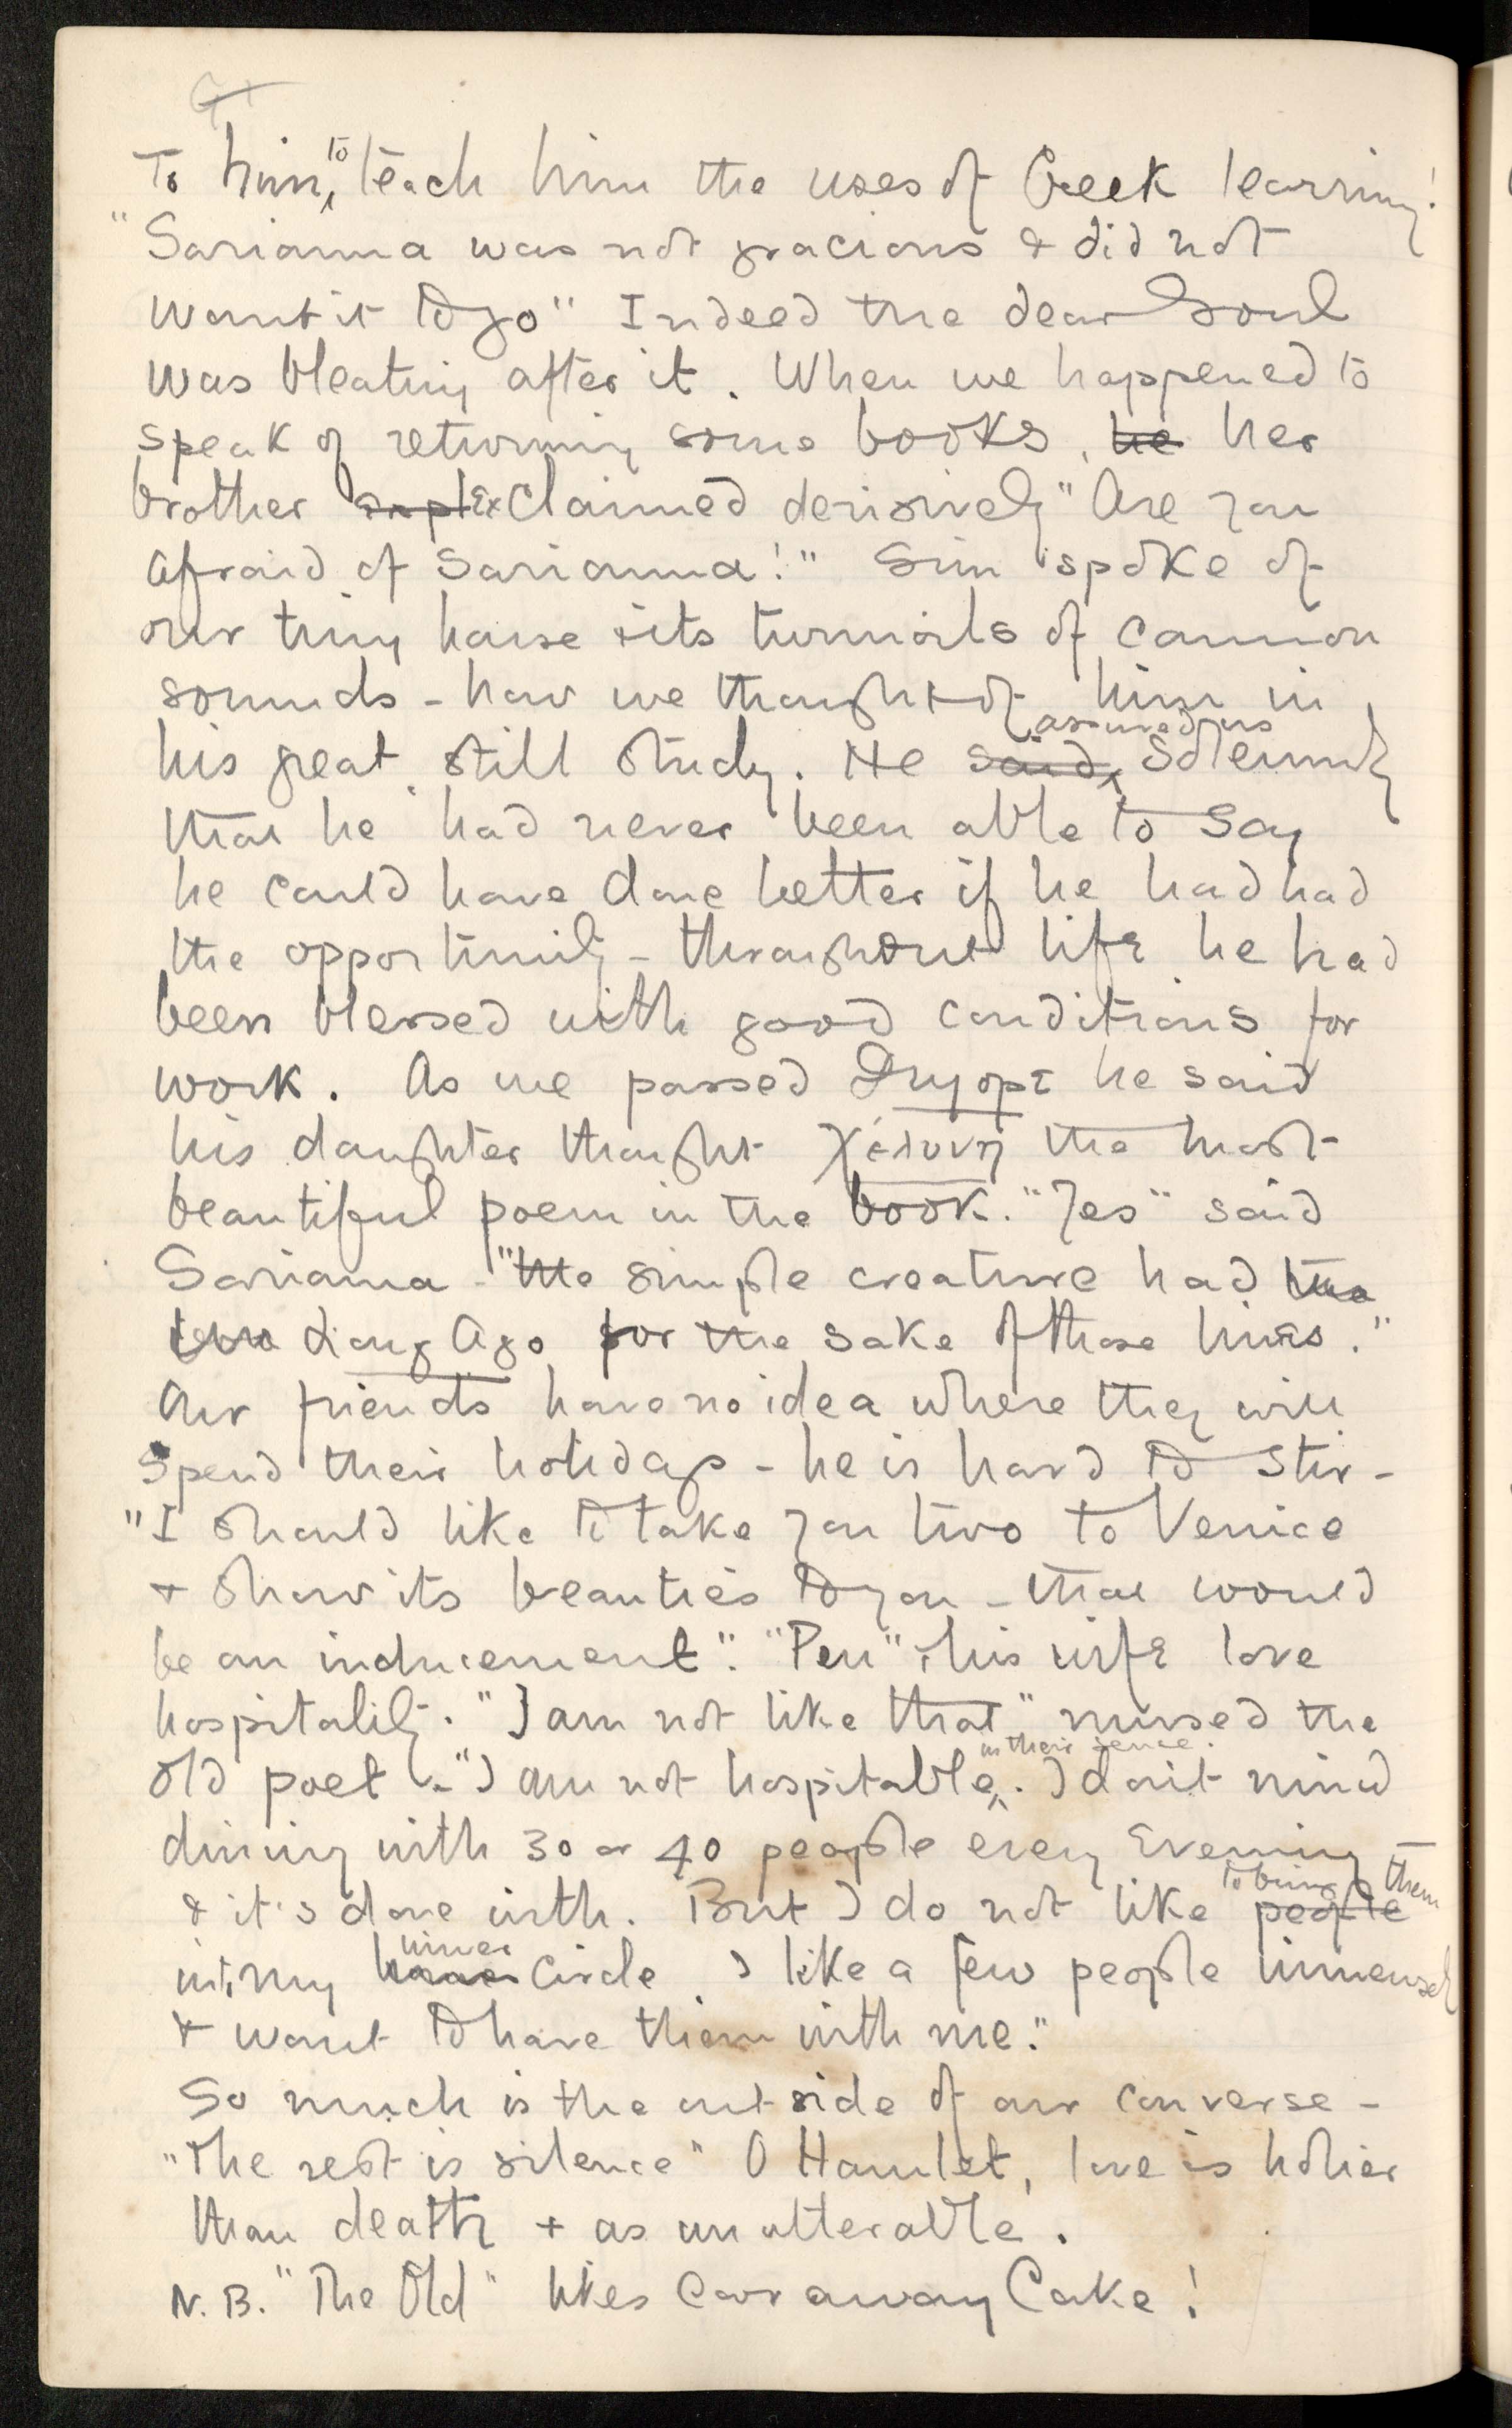 To him, to teach him the uses of Greek learning!
"Sarianna was not gracious & did not
want it to go" Indeed the dear Soul
was bleating after it. When we happened to
speak of returning some books, he her
brother exclaimed derisively "Are you
afraid of Sarianna!" Sim spoke of
our tiny house & its turmoils of common
sounds - how we thought of him in
his great still study. He said, assured us solemnly
that he had never been able to say
he could have done better if he had had
the opportunity - throughout life he had
been blessed with good conditions for
work. As we passed Dryope he said
his daughter thought χέλυνη the most
beautiful poem in the book. "Yes" said
Sarianna - "the simple creature had the
Long Ago for the sake of those lines."
Our friends have no idea where they will
spend their holidays - he is hard to stir -
"I should like to take you two to Venice
& show its beauties to you - that would
be an inducement". "Pen" & his wife love
hospitality. "I am not like that" mused the
old poet - "I am not hospitable in their sense. I don't mind
dining with 30 or 40 people every Evening
& it's done with. But I do not like people to bring them
into my inner Circle I like a few people immensely
& want to have them with me."
So much is the outside of our converse -
"The rest is silence" O Hamlet, love is holier
than death & as unutterable.
N.B. "The Old" likes Carraway Cake!